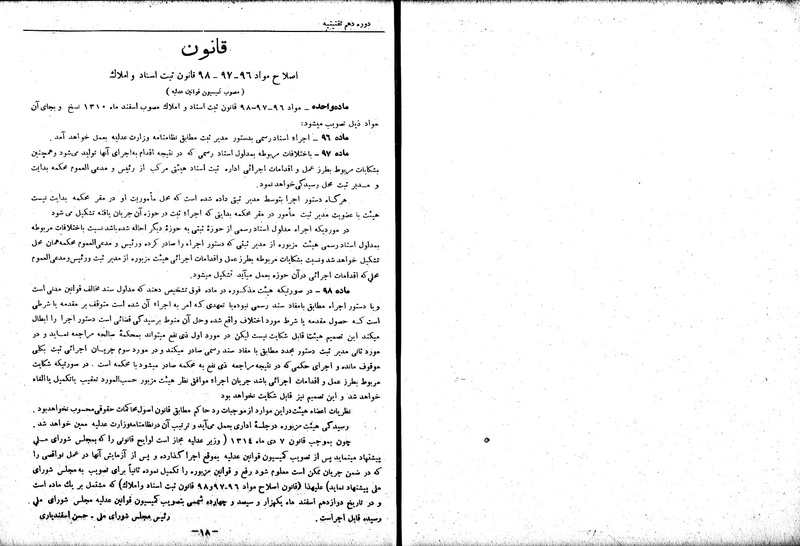 دوره دهم تقنینیه
قانون
اصلاح مواد ۹۶ - ۹۷ - ۹۸ قانون ثبت اسناد و املاك
( مصوب کمیسیون قوانین عدلیه )
ماده واحده ـ مواد ۹۶-۹۷-۹۸ قانون ثبت اسناد و املاك مصوب اسفند ماه ۱۳۱۰ نسخ و بجای آن
مواد ذیل تصویب میشود:
ماده ۹۶ - اجراء اسناد رسمی بدستور مدیر ثبت مطابق نظامنامه وزارت عدلیه بعمل خواهد آمد .
ماده ۹۷ - باختلافات مربوطه بمدلول اسناد رسمی که در نتیجه اقدام به اجرای آنها تولید میشود وهمچنین
بشکایات مربوط بطرز عمل و اقدامات اجرائی اداره ثبت اسناد هیئتی مرکب از رئیس و مدعی العموم محکمه بدایت
و مدیر ثبت محل رسیدگی خواهد نمود .
هرگاه دستور اجرا بتوسط مدیر ثبتی داده شده است که محل مأموریت او در مقر محکمه بدایت نیست
هیئت با عضویت مدیر ثبت مأمور در مقر محکمه بدایتی که اجراء ثبت در حوزه آن جریان یافته تشکیل می شود
در موردیکه اجراء مدلول اسناد رسمی از حوزهٔ ثبتی به حوزهٔ دیگر احاله شده باشد نسبت باختلافات مربوطه
بمدلول اسناد رسمی هیئت مزبوره از مدیر ثبتی که دستور اجراء را صادر کرده ورئیس و مدعی العموم محکمه همان محل
تشکیل خواهد شد ونسبت بشکایات مربوطه بطرز عمل واقدامات اجرائی هیئت مزبوره از مدیر ثبت ورئیس ومدعی العموم
محلی که اقدامات اجرائی در آن حوزه بعمل میآید تشکیل میشود.
ماده ۹۸ - در صورتیکه هیئت مذکوره در ماده فوق تشخیص دهند که مدلول سند مخالف قوانین مدنی است
و یا دستور اجراء مطابق بامفاد سند رسمی نبوده یا تعهدی که امر به اجراء آن شده است متوقف بر مقدمه یا شرطی
است که حصول مقدمه یا شرط مورد اختلاف واقع شده وحل آن منوط برسیدگی قضائی است دستور اجرا را ابطال
میکند این تصمیم هیئت قابل شکایت نیست لیکن در مورد اول ذی نفع میتواند بمحکمهٔ صالحه مراجعه نماید و در
مورد ثانی مدیر ثبت دستور مجدد مطابق با مفاد سند رسمی صادر میکند و در مورد سوم جریان اجرائی ثبت بکلی
موقوف مانده و اجرای حکمی که در نتیجه مراجعه ذی نفع به محکمه صادر میشود با محکمه است . در صورتیکه شکایت
مربوط بطرز عمل و اقدامات اجرائی باشد جریان اجراء موافق نظر هیئت مزبور حسب المورد تعقیب یا تکمیل یا الغاء
خواهد شد و این تصمیم نیز قابل شکایت نخواهد بود
نظریات اعضاء هیئت در این موارد از موجبات رد حاکم مطابق قانون اصول محاکمات حقوقی محسوب نخواهد بود .
رسیدگی هیئت مزبوره در جلسهٔ اداری بعمل میآید و ترتیب آن در نظامنامه وزارت عدلیه معین خواهد شد .
چون بموجب قانون ۷ دی ماه ۱۳۱۴ ( وزیر عدلیه مجاز است لوایح قانونی را که بمجلس شورای ملی
پیشنهاد مینماید پس از تصویب کمیسیون قوانین عدلیه بموقع اجرا گذارده و پس از آزمایش آنها در عمل نواقصی را
که در ضمن جریان ممکن است معلوم شود رفع و قوانین مزبوره را تکمیل نموده ثانیاً برای تصویب به مجلس شورای
ملی پیشنهاد نماید) علیهذا (قانون اصلاح مواد ۹۶-۹۷و۹۸ قانون ثبت اسناد واملاك) که مشتمل بر یك ماده است
و در تاریخ دوازدهم اسفند ماه یکهزار و سیصد و چهارده شمسی بتصویب کمیسیون قوانین عدلیه مجلس شورای ملی
رسیده قابل اجراست .
رئیس مجلس شورای ملی - حسن اسفندیاری
-۱۸-